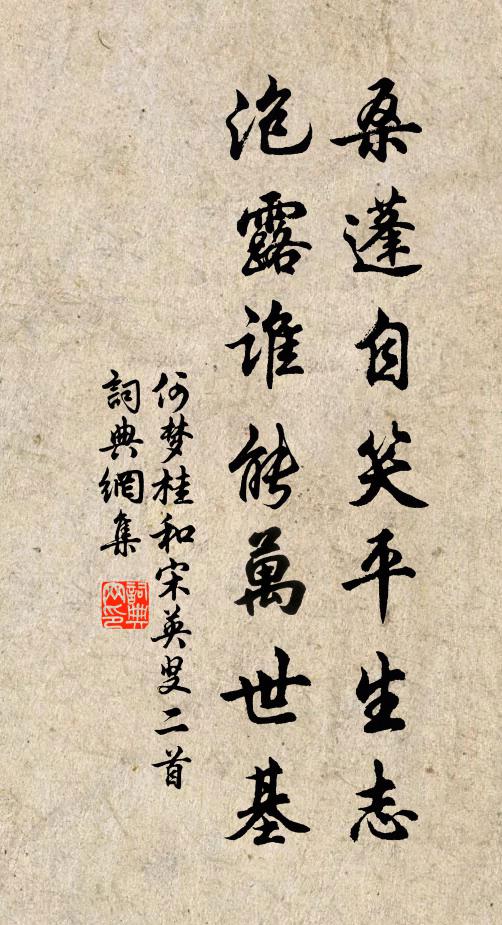 桑蓬自笑平生志
泡露谁能萬世基
何梦桂和宋英叟二首
詞典網集
詞典网印